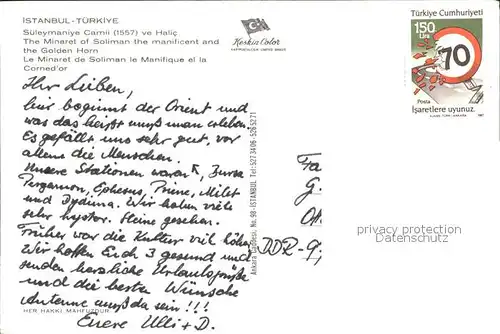 İSTANBUL-TÜRKİYE
Süleymaniye Camii (1557) ve Haliç.
The Minaret of Soliman the manificent and
the Golden Horn
Le Minaret de Soliman le Manifique el la
Corned'or
Keskin Color
Türkiye Cumhuriyeti
150
Lira
70
Posta
İşaretlere uyunuz.
1987
Ihr Lieben,
hier beginnt der Orient und
was das heißt muß man erleben.
Es gefällt uns sehr gut, vor
allem die Menschen.
Unsere Stationen waren Bursa
Pergamon, Ephesus, Priene, Milet
und Dydima. Wir haben viele
sehr hystor. Steine gesehen.
Früher war die Kultur viel höher
Wir hoffen Euch 3 gesund und
senden herzliche Urlaubsgrüße
und die besten Wünsche
Antenne muß da sein!!!
Euere Ulli + D.
HER HAKKI MAHFUZDUR
Ankara Caddesi, No. 98-İSTANBUL Tel: 5273406-5265271
Fa
G.
DDR-9
privacy protection
Datenschutz